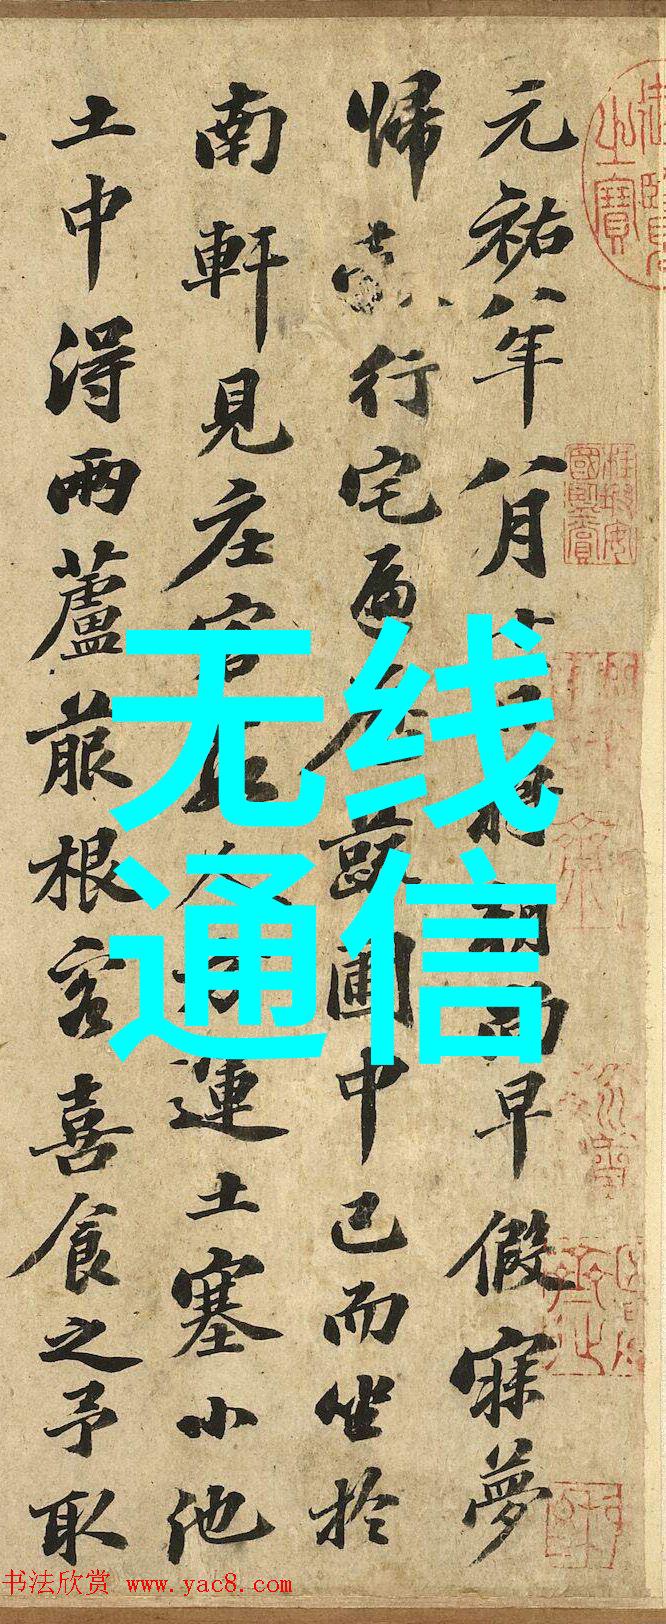 元祐八年八月朝尚早假寐夢
歸行宅遍歷蔬圃中已而坐於
南軒見庄客數人方運土塞小池
土中得兩蘆菔根客喜食之予取
无线
通信
书法欣赏 www.yac8.com